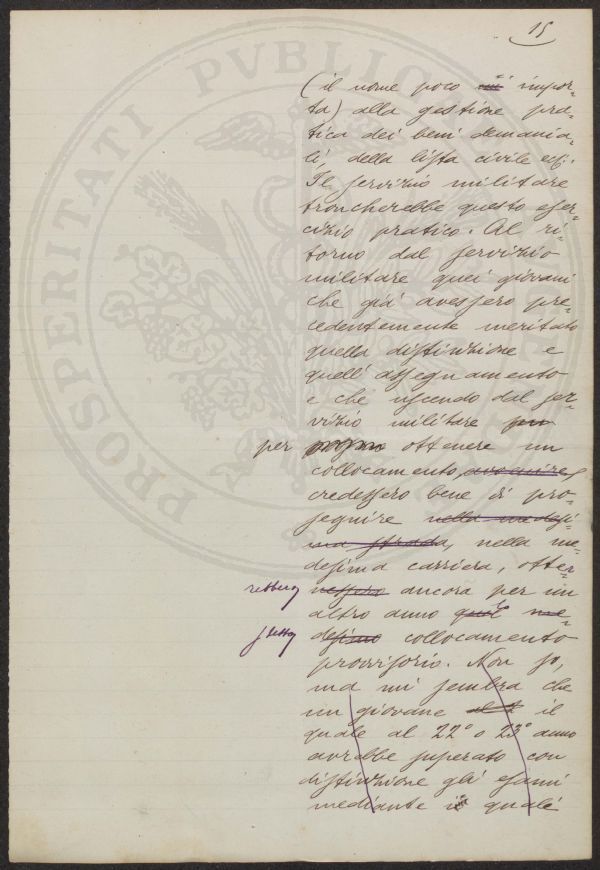 15
(il nome poco impor-
ta) alla gestione pra-
tica dei beni demania-
li, della lista civile ecc.
Il servizio militare
troncherebbe questo eser-
cizio pratico. Al ri-
torno dal servizio
militare quei giovani
che già avessero pre-
cedentemente meritato
quella distinzione e
quell'assegnamento
e che uscendo dal ser-
vizio militare
per ottenere un
collocamento,
credessero bene di pro-
seguire nella medesi-
ma strada, nella me-
desima carriera, otter-
rebbero nessero ancora per un
altro anno quel me-
stesso desimo collocamento
provvisorio. Non so,
ma mi sembra che
un giovane il
quale al 22° o 23° anno
avrebbe superato con
distinzione gli esami
mediante i quali
PROSPERITATI PVBLICAE